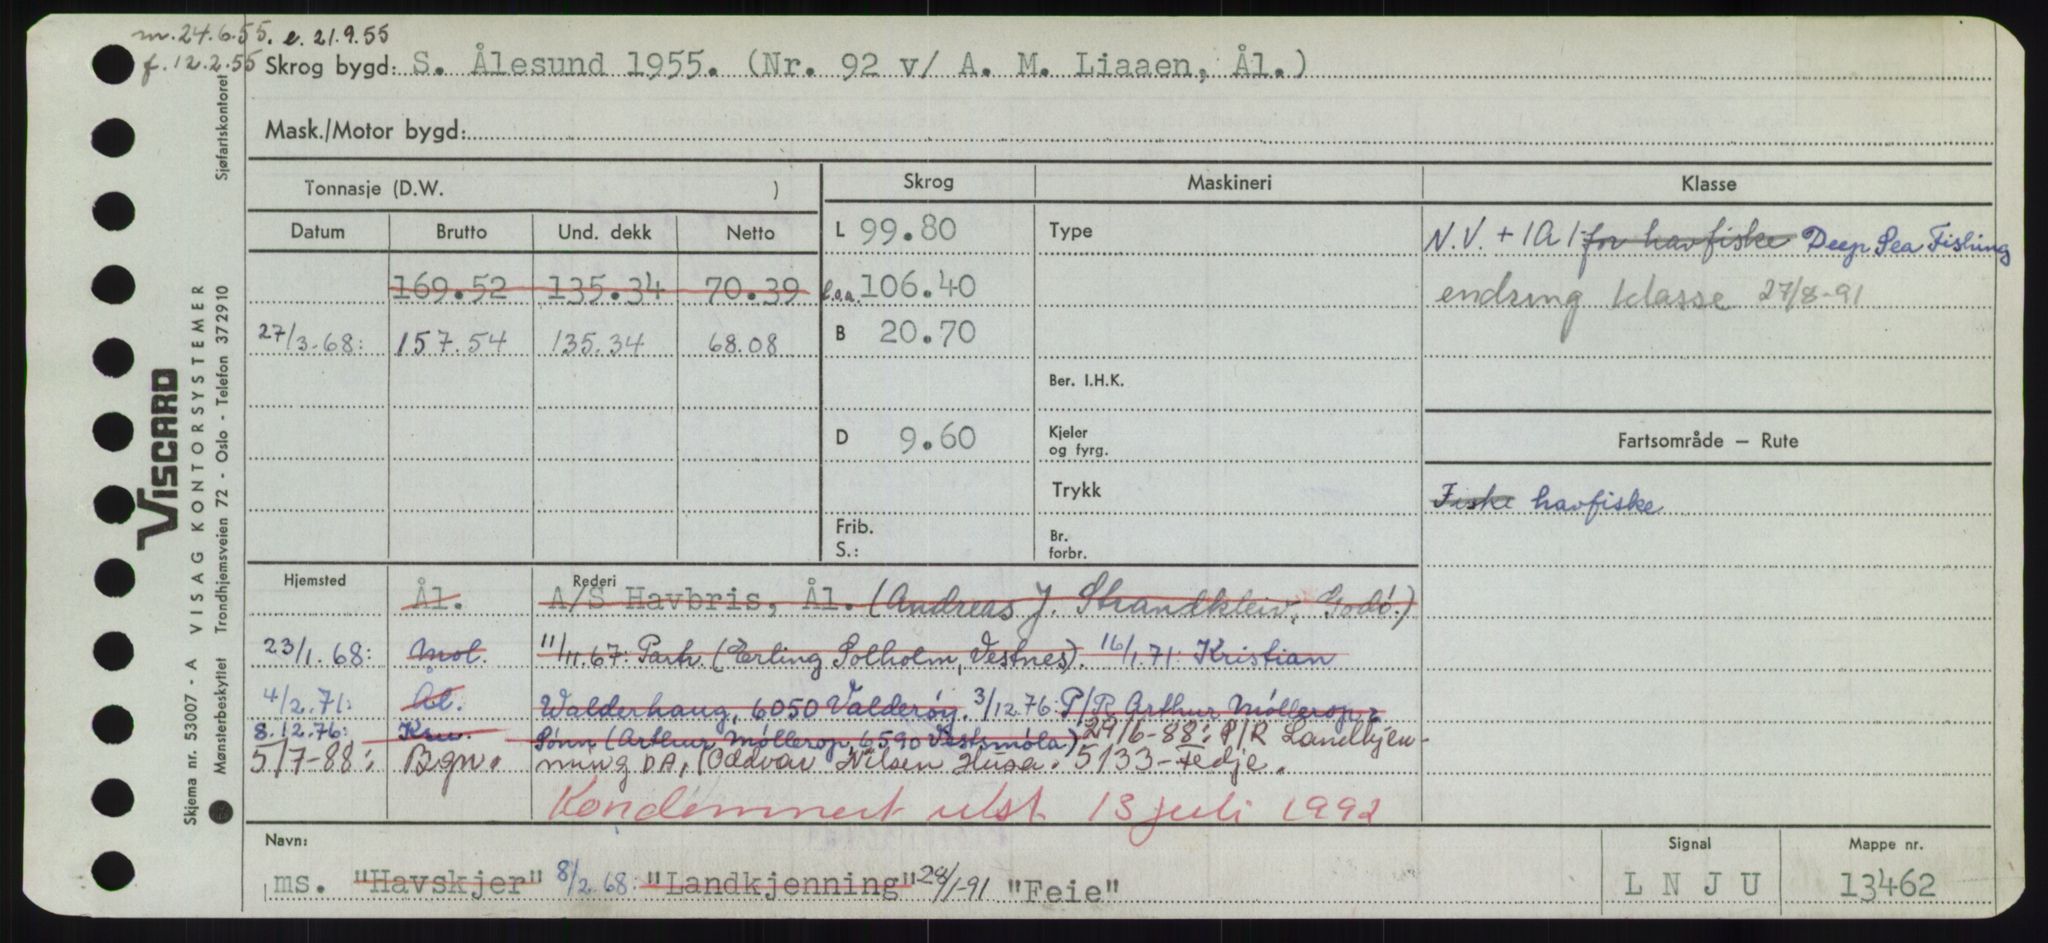 m. 24.6.55. e. 21.9.55
f. 12.2.55
Skrog bygd: S. Ålesund 1955. (Nr. 92 v/ A. M. Liaaen, Ål.)
Mask./Motor bygd:
Tonnasje (D.W. )
Skrog
Maskineri
Klasse
Datum
Brutto
Und. dekk
Netto
169.52 135.34 70.39
27/3.68: 157.54 135.34 68.08
L 99.80
l.o.a. 106.40
B 20.70
D 9.60
Frib.
S.:
Type
Ber. I.H.K.
Kjeler
og fyrg.
Trykk
Br.
forbr.
N.V. + 1A1 for havfiske Deep Sea Fishing
endring klasse 27/8-91
Fartsområde – Rute
Fiske havfiske
Hjemsted
Rederi
Ål. A/S Havbris, Ål. (Andreas J. Strandkleiv, Godø.)
23/1.68: Mol. 11/11.67: Partr. (Erling Solholm, Vestnes). 16/1.71: Kristian
4/2.71: Ål. Walderhaug, 6050 Valderøy. 3/12.76: P/R Arthur Møllerop &
8.12.76: Krs. Sønn (Arthur Møllerop, 6590 Vestsmøla) 29/6-88: P/R Landkjen-
5/7-88: Bgn. ning DA, (Oddvar Nilsen Husa. 5133-Fedje.
Kondemnert utst 13 juli 1992
Navn:
ms. "Havskjer" 8/2.68: "Landkjenning" 28/1-91 "Feie"
Signal
L N J U
Mappe nr.
13462
VISCARD
Skjema nr. 53007 - A VISAG KONTORSYSTEMER
Mønsterbeskyttet Trondhjemsveien 72 - Oslo - Telefon 37 29 10 Sjøfartskontoret